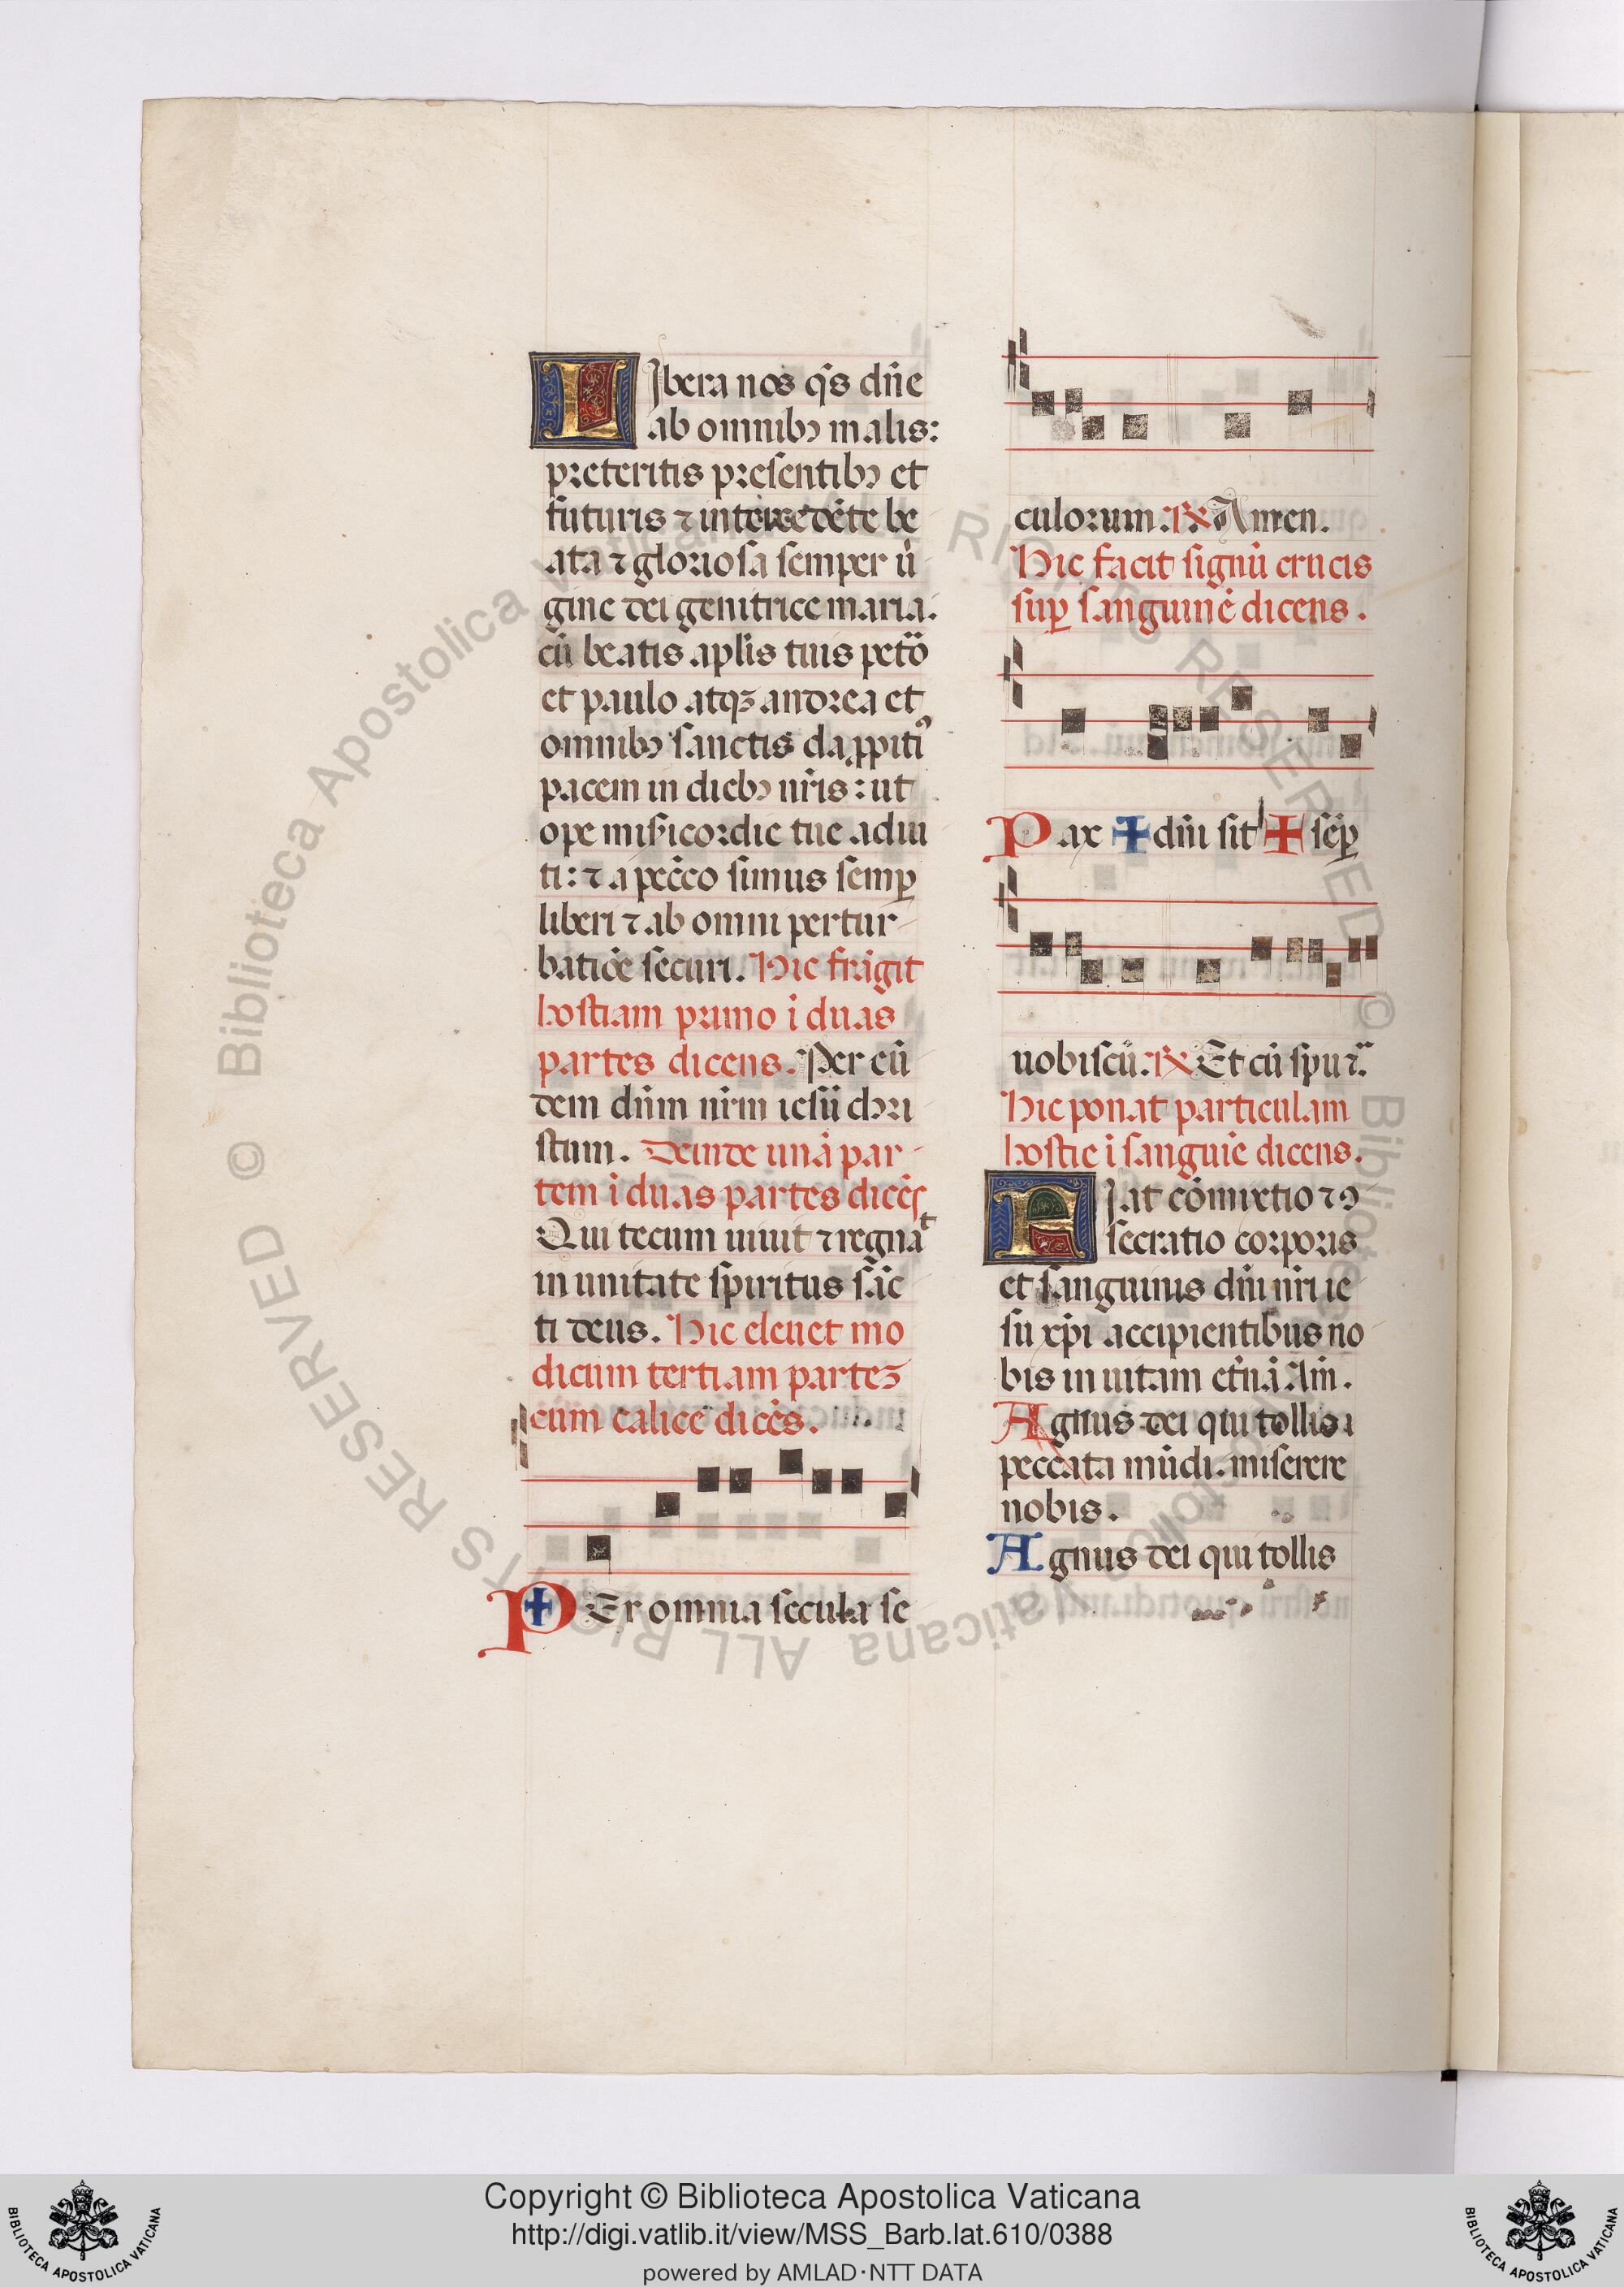 LIbera nos q̄s dn̄e
ab omnibꝫ malis:
preteritis presentibꝫ et
futuris ⁊ intercedēte be
ata ⁊ gloriosa semper ū
gine dei genitrice maria.
cū beatis aplīs tuis petrͦ
et paulo atqꝫ andrea et
omnibꝫ sanctis da ꝓpitiꝰ
pacem in diebꝫ nr̄is: ut
ope misīcordie tue adiu
ti: ⁊ a pec̄co simus semꝑ
liberi ⁊ ab omni pertur
batiōe securi. Hic frāgit
hostiam primo ī duas
partes dicens. Per eū
dem dn̄m nr̄m iesū chri
stum. Deinde unā par
tem ī duas partes dicēs
Qui tecum uiuit ⁊ regnat
in unitate spiritus sāc
ti deus. Hic eleuet mo
dicum tertiam partēz
cum calice dicēs.
PEr omnia secula se
culorum. ℟ Amen.
Hic facit signū crucis
suꝑ sanguinē dicens.
Pax ✠ dn̄i sit ✠ sēꝑ
uobiscū. ℟ Et cū spū t.
Hic ponat particulam
hostie ī sanguīe dicens.
FIat cōmixtio ⁊ ꝯ
secratio corporis
et sanguinis dn̄i nr̄i ie
su xp̄i accipientibus no
bis in uitam etn̄ā. Am̄.
Agnus dei qui tollis
peccata mūdi. miserere
nobis.
Agnus dei qui tollis
© Biblioteca Apostolica Vaticana ALL RIGHTS RESERVED © Biblioteca Apostolica Vaticana ALL RIGHTS RESERVED
Copyright © Biblioteca Apostolica Vaticana
http://digi.vatlib.it/view/MSS_Barb.lat.610/0388
powered by AMLAD·NTT DATA
BIBLIOTECA APOSTOLICA VATICANA
BIBLIOTECA APOSTOLICA VATICANA